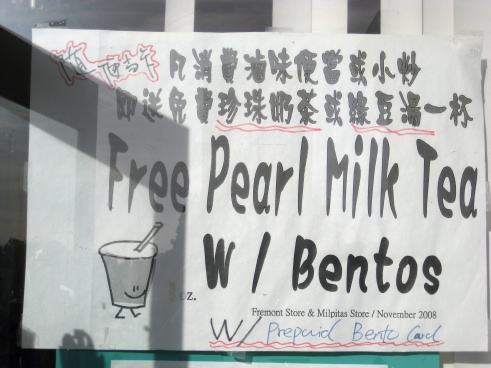 凡消費滷味便當或小炒
即送免費珍珠奶茶或綠豆湯一杯
Free Pearl Milk Tea
W / Bentos
oz.
Fremont Store & Milpitas Store / November 2008
W/ Prepaid Bento Card